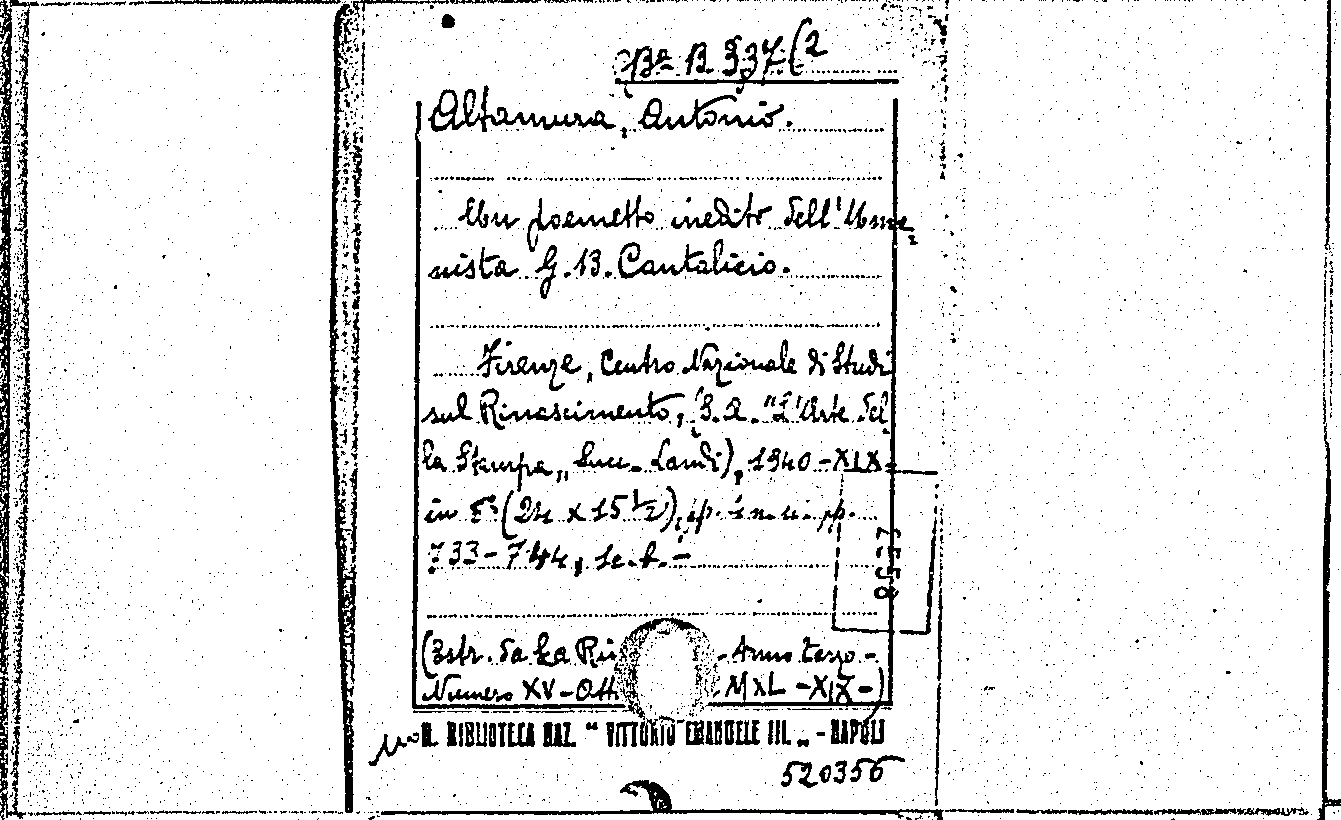 Ba B 337(2
Altamura, Antonio.
Un poemetto inedito dell'Uma-
nista G.B. Cantalicio.
Firenze, Centro Nazionale di Studi
sul Rinascimento, (S.A. "L'Arte del-
la Stampa„ Succ. Landi), 1940-XIX-
in 8°(24 x 15 ½), pp.
733-744,
(Estr. da La Ri - Anno terzo -
Numero XV-Ott MXL -XIX-)
R. BIBLIOTECA NAZ. “ VITTORIO EMANUELE III. „ - NAPOLI
520356